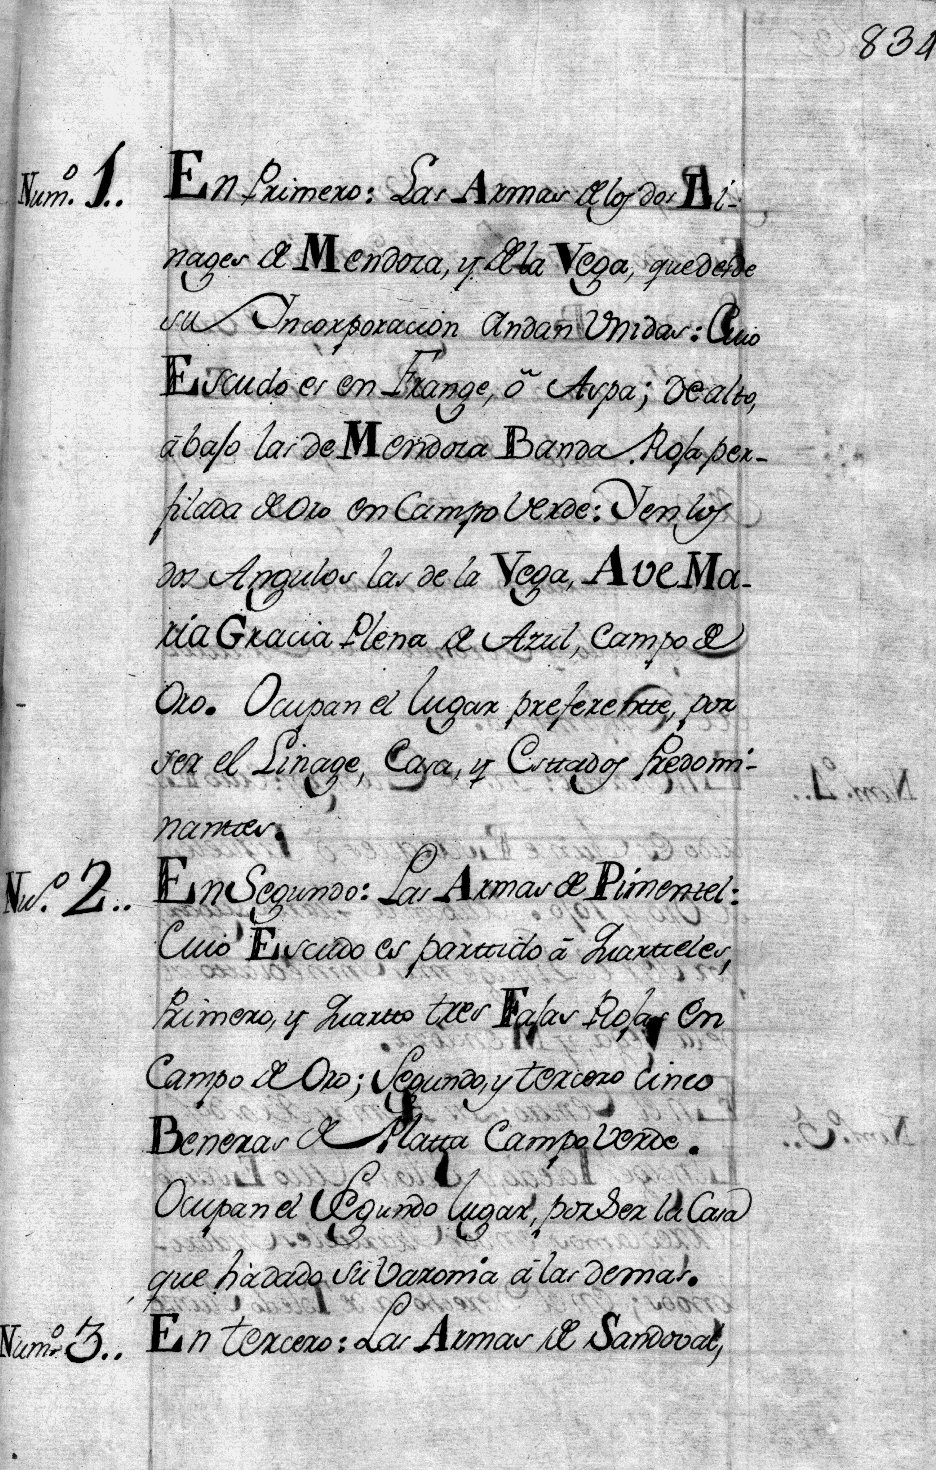 834
Numº. 1..
En Primero: Las Armas de los dos Li-
nages de Mendoza, y de la Vega, que desde
su Incorporacion andan Unidas: Cuio
Escudo es en Frange, ô Aspa; de alto,
â baso las de Mendoza Banda Rosa per-
filada de Oro en Campo Verde: Y en los
dos Angulos las de la Vega, Ave Ma-
ria Gracia Plena de Azul, Campo de
Oro. Ocupan el lugar preferentte, por
ser el Linage, Casa, y Esttados Predomi-
nanttes.
Nuº. 2..
En Segundo: Las Armas de Pimentel:
Cuio Escudo es parttido â Quartteles,
Primero, y Quartto tres Fajas Rojas en
Campo de Oro; Segundo, y tercero cinco
Beneras de Platta Campo Verde.
Ocupan el Segundo lugar, por ser la Casa
que hà dado su Varonia â las demas.
Numº. 3..
En tercero: Las Armas de Sandoval,